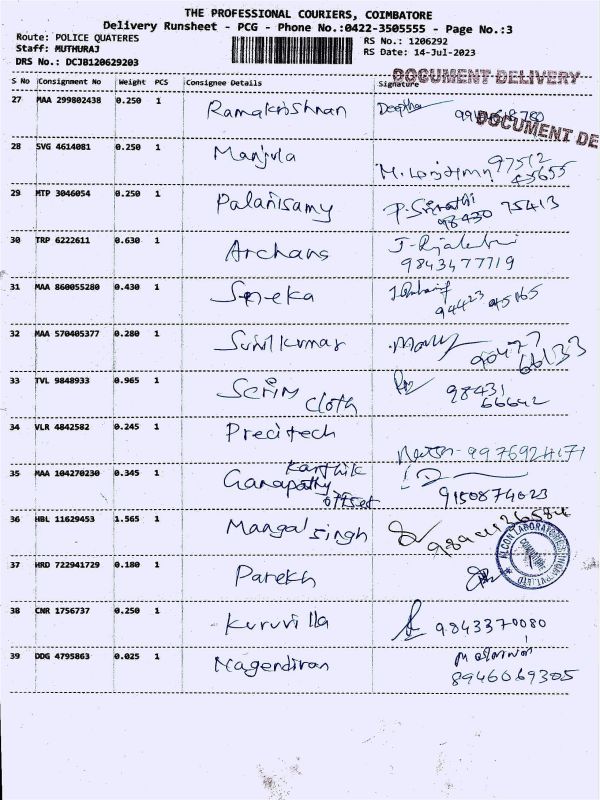 THE PROFESSIONAL COURIERS, COIMBATORE
Delivery Runsheet - PCG - Phone No.:0422-3505555 - Page No.:3
Route: POLICE QUATERES
RS No.: 1206292
Staff: MUTHURAJ
RS Date: 14-Jul-2023
DRS No.: DCJB120629203
DOCUMENT DELIVERY
S No Consignment No Weight PCS Consignee Details Signature
27 MAA 299802438 0.250 1 Ramakrishnan Deeptha
DOCUMENT DE
28 SVG 4614081 0.250 1 Manjula 97512
45655
29 MTP 3046054 0.250 1 Palanisamy
98430 75413
30 TRP 6222611 0.630 1 Archans
9843477719
31 MAA 860055280 0.430 1 Sneka
94423 45165
32 MAA 570405377 0.280 1 Sunil kumar
90477
66133
33 TVL 9848933 0.965 1 Serim 98431
Cloth 66642
34 VLR 4842582 0.245 1 Precitech
9976924171
35 MAA 104270230 0.345 1 Ganapathy Karthik
offset 9150874023
36 HBL 11629453 1.565 1 Mangal singh
37 HRD 722941729 0.180 1 Parekh
38 CNR 1756737 0.250 1 Kuruvilla 9843370080
39 DDG 4795863 0.025 1 Nagendiran
8946069305